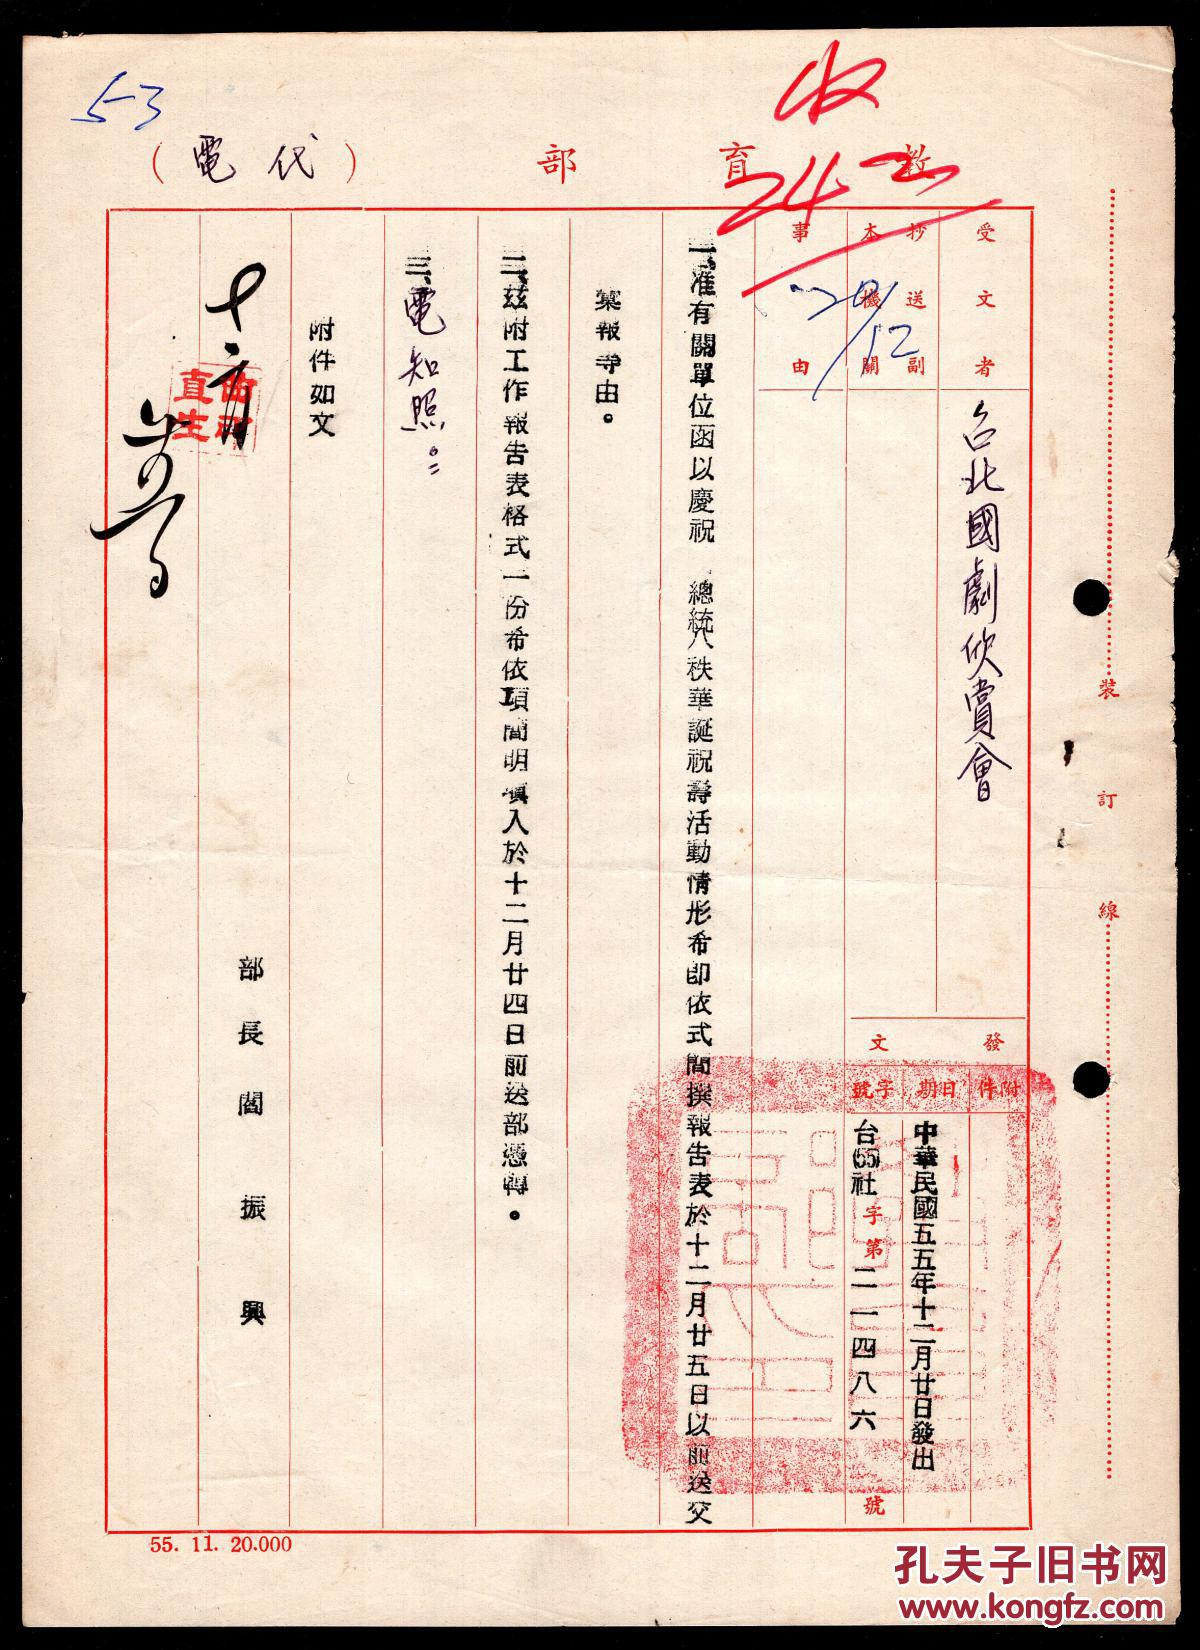 5-3
收
24-2
教育部（代電）
受文者
台北國劇欣賞會
抄送副本機關
20/12
事由
發文
附件
日期
中華民國五五年十二月廿日發出
字號
台(55)社字第二一四八六號
一、准有關單位函以慶祝　總統八秩華誕祝壽活動情形希即依式簡撰報告表於十二月廿五日以前送交
彙報等由。
二、茲附工作報告表格式一份希依項簡明填入於十二月廿四日前送部憑轉。
三、電知照。
附件如文
部長閻振興
裝訂線
55. 11. 20.000
孔夫子旧书网
www.kongfz.com